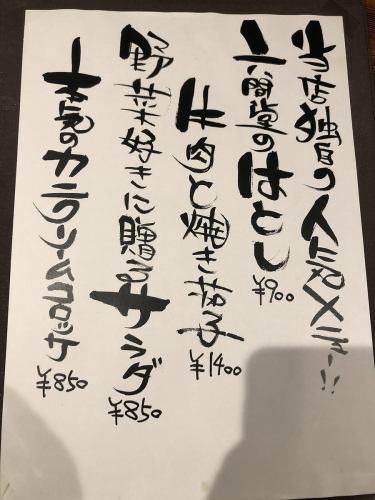 当店独自の人気メニュー!!
六間堂のはとし
¥900
牛肉と焼き茄子
¥1400
野菜好きに贈るサラダ
¥850
本気のカニクリームコロッケ
¥850